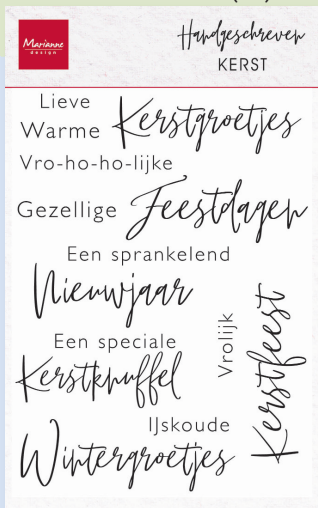 Marianne
design
Handgeschreven
KERST
Lieve
Warme Kerstgroetjes
Vro-ho-ho-lijke
Gezellige Feestdagen
Een sprankelend
Nieuwjaar
Een speciale
Kerstknuffel
Vrolijk
Kerstfeest
IJskoude
Wintergroetjes